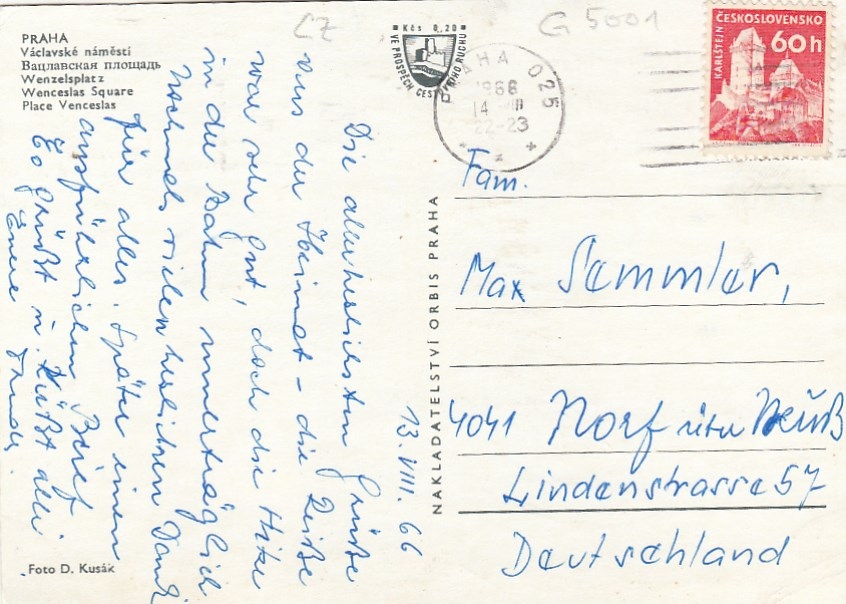 PRAHA
Václavské náměstí
Вацлавская площадь
Wenzelsplatz
Wenceslas Square
Place Venceslas
CZ
G 5001
Kčs 0,20
VE PROSPĚCH CESTOVNÍHO RUCHU
PRAHA 025
14 VIII
22-23
ČESKOSLOVENSKO
KARLŠTEJN
60h
13. VIII. 66
Die allerherzlichsten Grüße
aus der Heimat - die Reise
war sehr gut, doch die Hitze
in der Bahn unerträglich
Nochmals vielen herzlichen Dank
für alles. Später einen
ausführlichen Brief
Es grüßt u. küßt alle
Eure
NAKLADATELSTVÍ ORBIS PRAHA
Fam.
Max Semmler,
4041 Norf über Neuß
Lindenstrasse 57
Deutschland
Foto D. Kusák